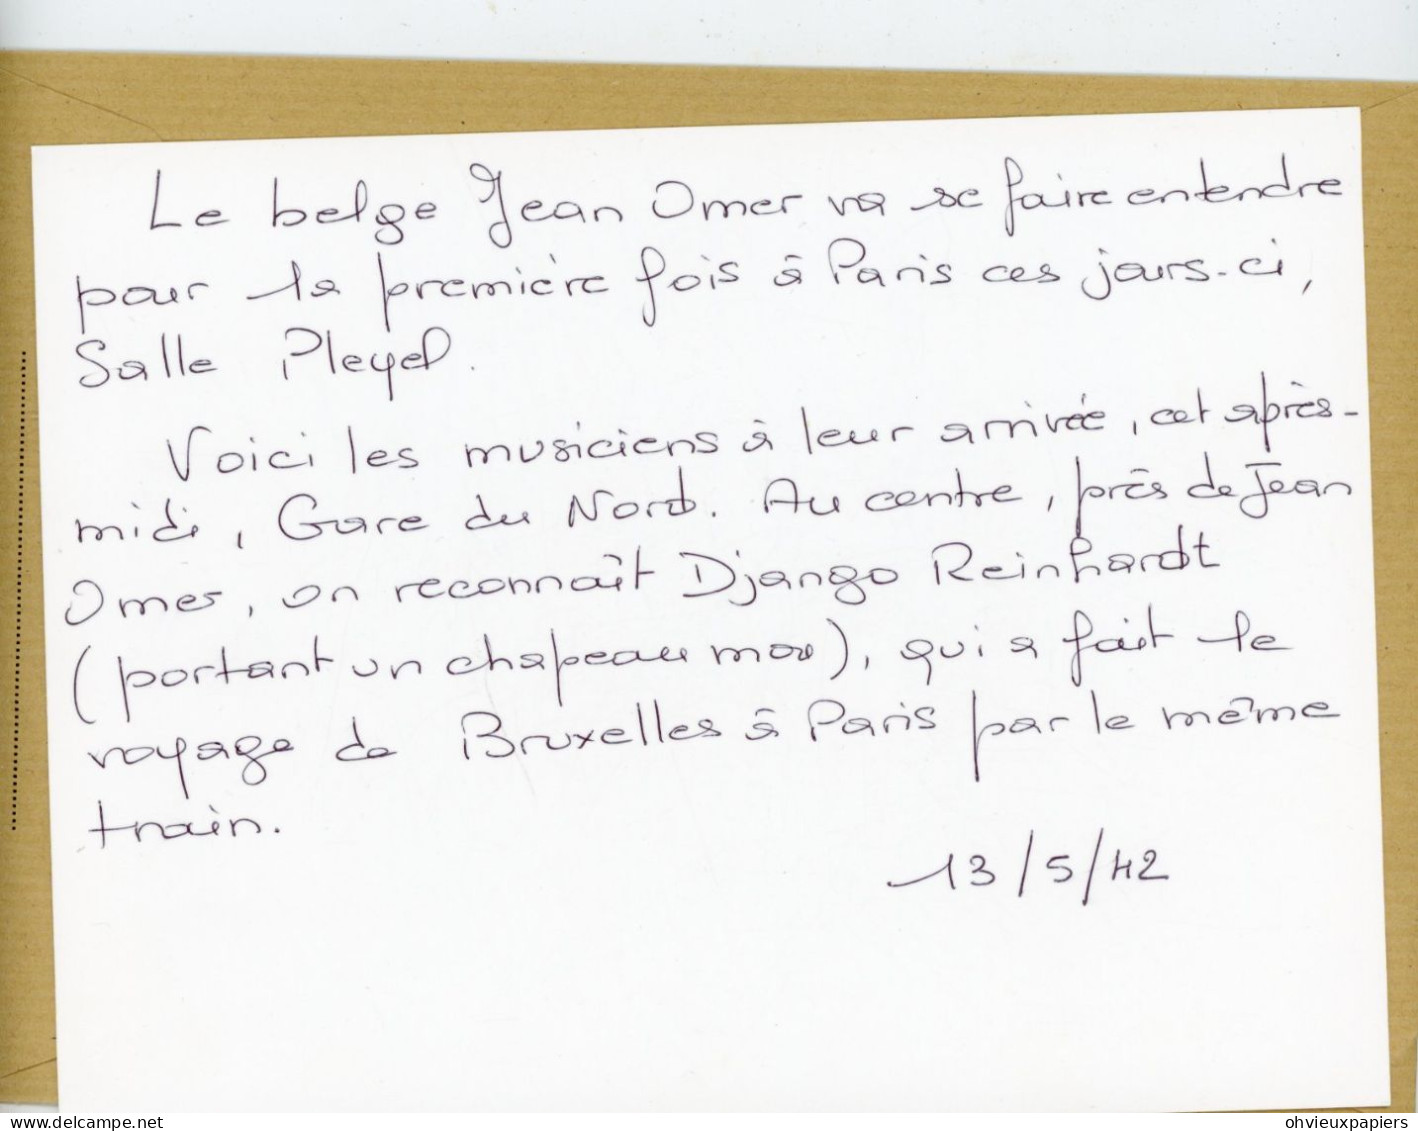 Le belge Jean Omer va se faire entendre
pour la première fois à Paris ces jours-ci,
Salle Pleyel.
Voici les musiciens à leur arrivée, cet après-
midi, Gare du Nord. Au centre, près de Jean
Omer, on reconnaît Django Reinhardt
(portant un chapeau mou), qui a fait le
voyage de Bruxelles à Paris par le même
train.
13/5/42
delcampe.net
ohvieuxpapiers